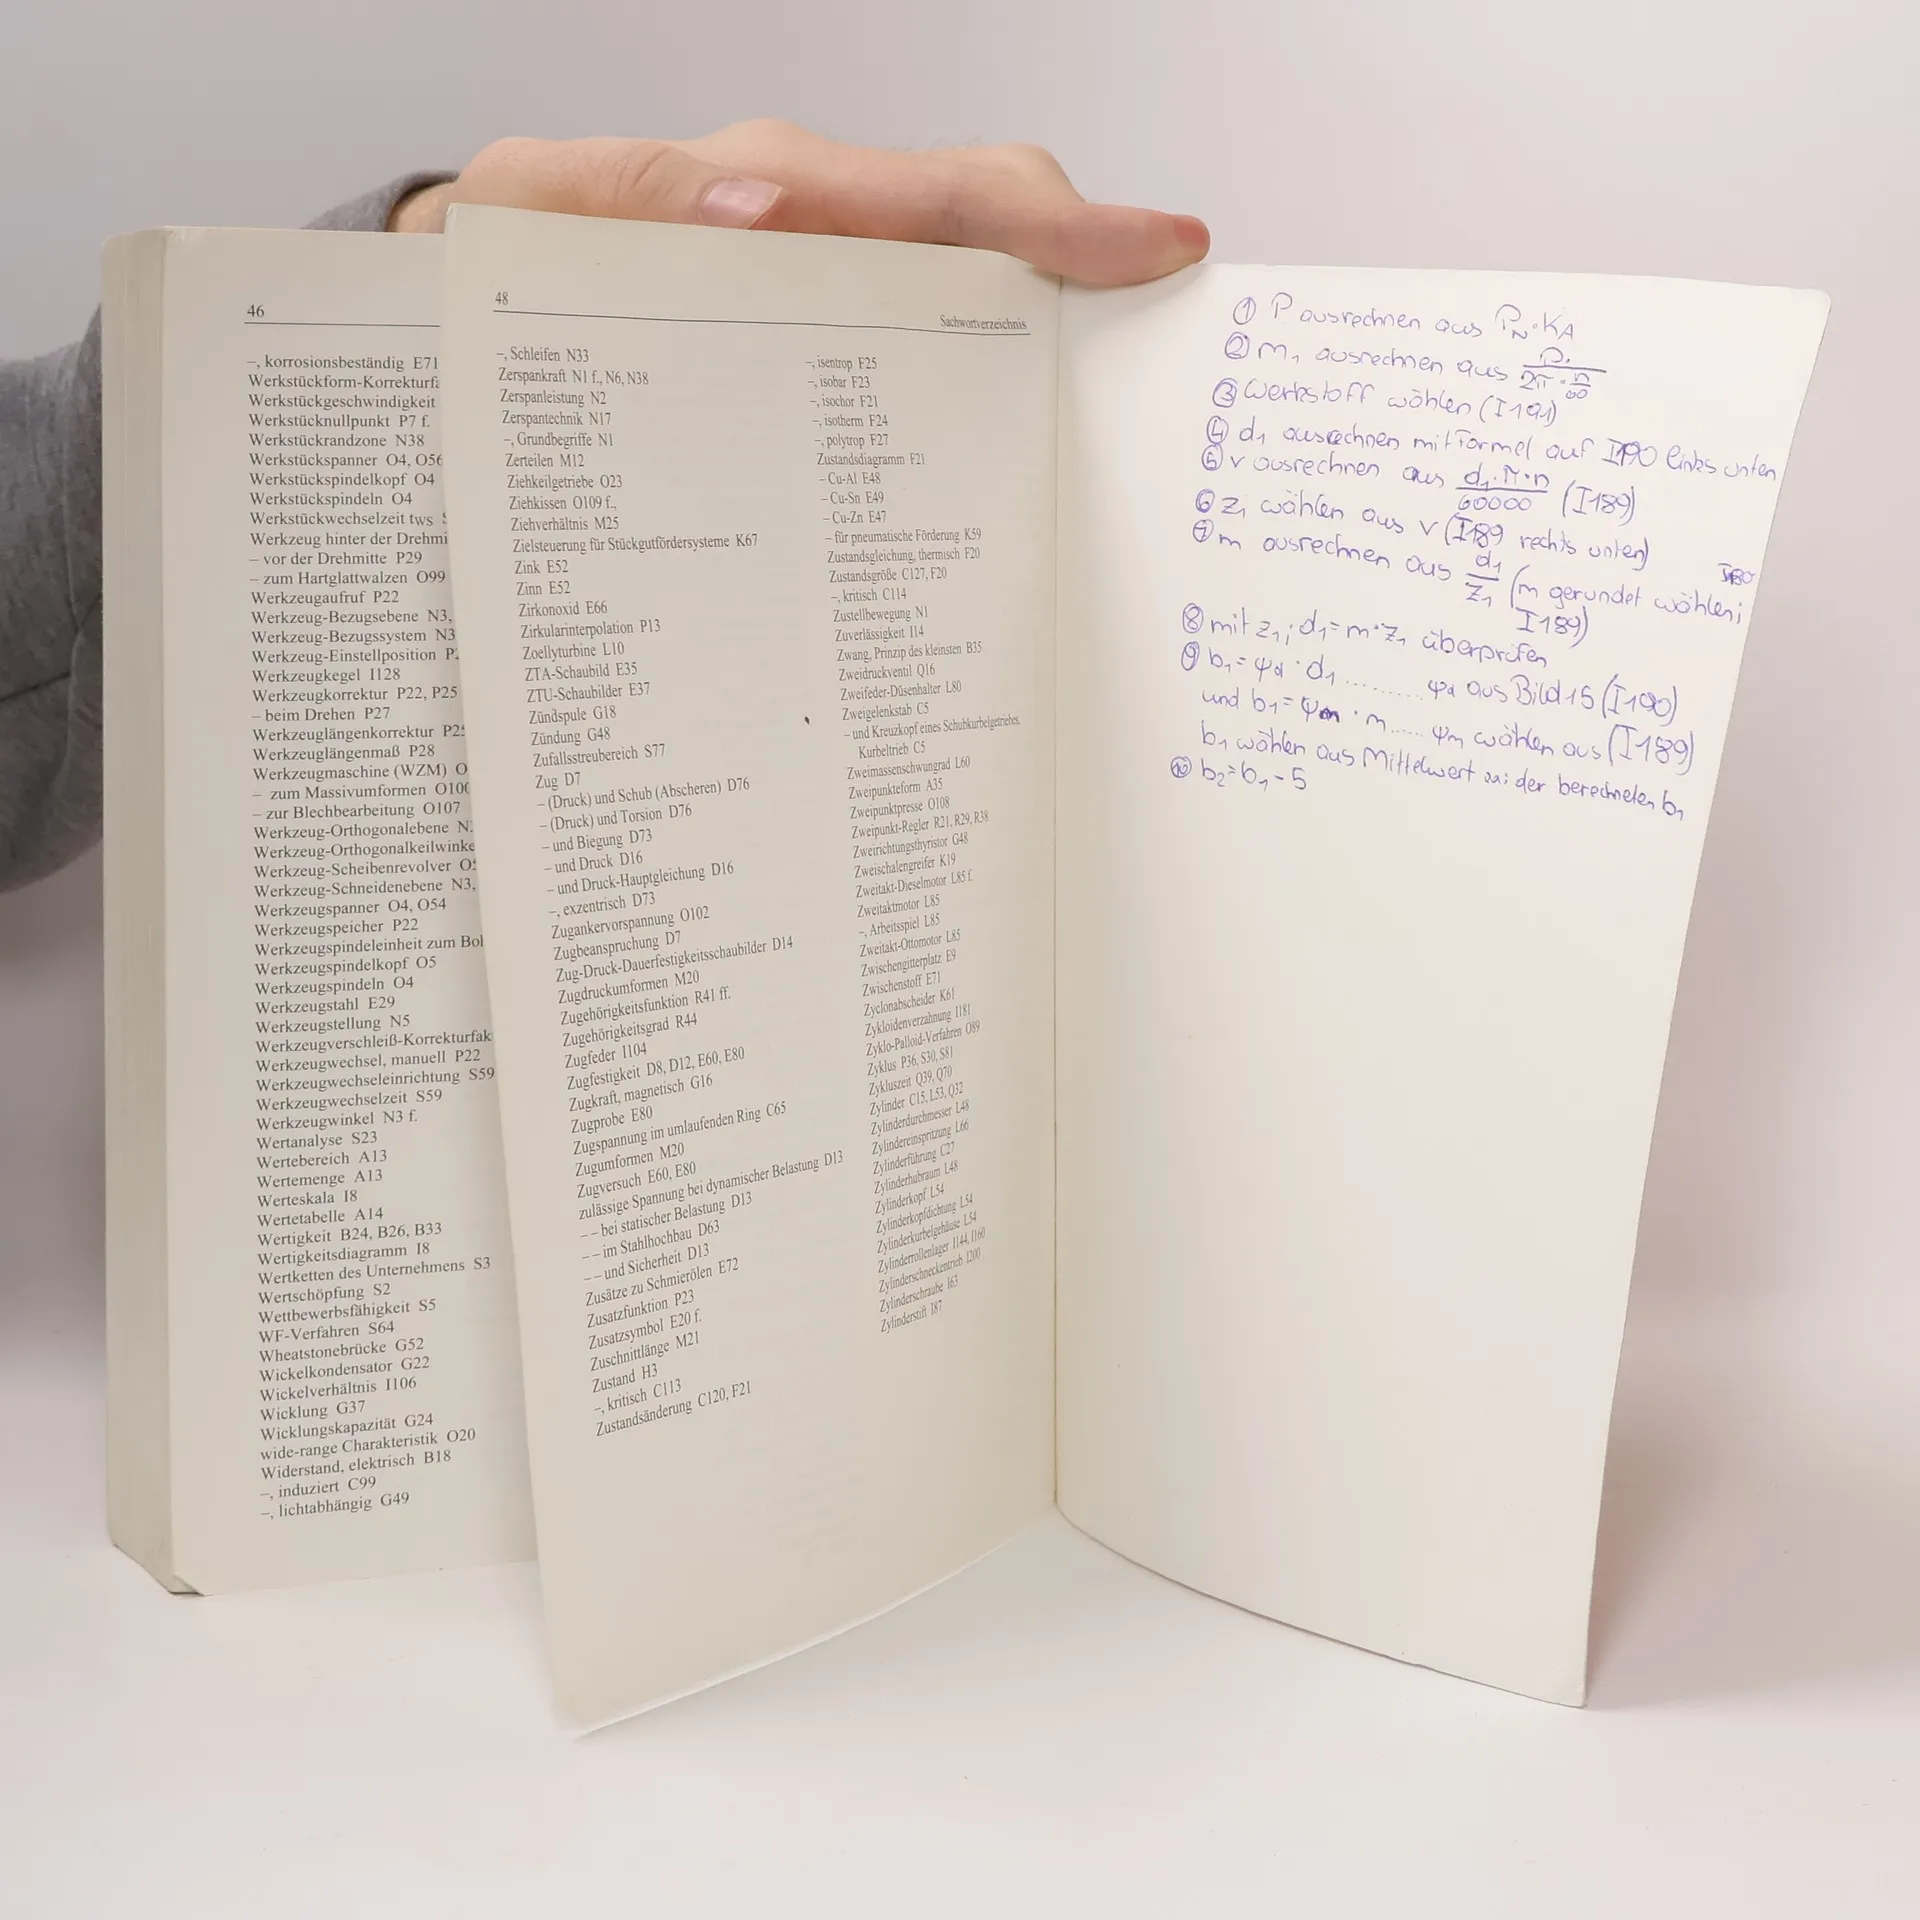 46
–, korrosionsbeständig E71
Werkstückform-Korrekturfa
Werkstückgeschwindigkeit
Werkstücknullpunkt P7 f.
Werkstückrandzone N38
Werkstückspanner O4, O56
Werkstückspindelkopf O4
Werkstückspindeln O4
Werkstückwechselzeit tws
Werkzeug hinter der Drehmi
– vor der Drehmitte P29
– zum Hartglattwalzen O99
Werkzeugaufruf P22
Werkzeug-Bezugsebene N3,
Werkzeug-Bezugssystem N3
Werkzeug-Einstellposition P2
Werkzeugkegel I128
Werkzeugkorrektur P22, P25
– beim Drehen P27
Werkzeuglängenkorrektur P25
Werkzeuglängenmaß P28
Werkzeugmaschine (WZM) O
– zum Massivumformen O100
– zur Blechbearbeitung O107
Werkzeug-Orthogonalebene N
Werkzeug-Orthogonalkeilwinke
Werkzeug-Scheibenrevolver O5
Werkzeug-Schneidenebene N3,
Werkzeugspanner O4, O54
Werkzeugspeicher P22
Werkzeugspindeleinheit zum Bol
Werkzeugspindelkopf O5
Werkzeugspindeln O4
Werkzeugstahl E29
Werkzeugstellung N5
Werkzeugverschleiß-Korrekturfak
Werkzeugwechsel, manuell P22
Werkzeugwechseleinrichtung S59
Werkzeugwechselzeit S59
Werkzeugwinkel N3 f.
Wertanalyse S23
Wertebereich A13
Wertemenge A13
Werteskala I8
Wertetabelle A14
Wertigkeit B24, B26, B33
Wertigkeitsdiagramm I8
Wertketten des Unternehmens S3
Wertschöpfung S2
Wettbewerbsfähigkeit S5
WF-Verfahren S64
Wheatstonebrücke G52
Wickelkondensator G22
Wickelverhältnis I106
Wicklung G37
Wicklungskapazität G24
wide-range Charakteristik O20
Widerstand, elektrisch B18
–, induziert C99
–, lichtabhängig G49
48
Sachwortverzeichnis
–, Schleifen N33
Zerspankraft N1 f., N6, N38
Zerspanleistung N2
Zerspantechnik N17
–, Grundbegriffe N1
Zerteilen M12
Ziehkeilgetriebe O23
Ziehkissen O109 f.,
Ziehverhältnis M25
Zielsteuerung für Stückgutfördersysteme K67
Zink E52
Zinn E52
Zirkonoxid E66
Zirkularinterpolation P13
Zoellyturbine L10
ZTA-Schaubild E35
ZTU-Schaubilder E37
Zündspule G18
Zündung G48
Zufallsstreubereich S77
Zug D7
– (Druck) und Schub (Abscheren) D76
– (Druck) und Torsion D76
– und Biegung D73
– und Druck D16
– und Druck-Hauptgleichung D16
–, exzentrisch D73
Zugankervorspannung O102
Zugbeanspruchung D7
Zug-Druck-Dauerfestigkeitsschaubilder D14
Zugdruckumformen M20
Zugehörigkeitsfunktion R41 ff.
Zugehörigkeitsgrad R44
Zugfeder I104
Zugfestigkeit D8, D12, E60, E80
Zugkraft, magnetisch G16
Zugprobe E80
Zugspannung im umlaufenden Ring C65
Zugumformen M20
Zugversuch E60, E80
zulässige Spannung bei dynamischer Belastung D13
– – bei statischer Belastung D13
– – im Stahlhochbau D63
– – und Sicherheit D13
Zusätze zu Schmierölen E72
Zusatzfunktion P23
Zusatzsymbol E20 f.
Zuschnittlänge M21
Zustand H3
–, kritisch C113
Zustandsänderung C120, F21
–, isentrop F25
–, isobar F23
–, isochor F21
–, isotherm F24
–, polytrop F27
Zustandsdiagramm F21
– Cu-Al E48
– Cu-Sn E49
– Cu-Zn E47
– für pneumatische Förderung K59
Zustandsgleichung, thermisch F20
Zustandsgröße C127, F20
–, kritisch C114
Zustellbewegung N1
Zuverlässigkeit I14
Zwang, Prinzip des kleinsten B35
Zweidruckventil Q16
Zweifeder-Düsenhalter L80
Zweigelenkstab C5
– und Kreuzkopf eines Schubkurbelgetriebes,
Kurbeltrieb C5
Zweimassenschwungrad L60
Zweipunkteform A35
Zweipunktpresse O108
Zweipunkt-Regler R21, R29, R38
Zweirichtungsthyristor G48
Zweischalengreifer K19
Zweitakt-Dieselmotor L85 f.
Zweitaktmotor L85
–, Arbeitsspiel L85
Zweitakt-Ottomotor L85
Zwischengitterplatz E9
Zwischenstoff E71
Zyclonabscheider K61
Zykloidenverzahnung I181
Zyklo-Palloid-Verfahren O89
Zyklus P36, S30, S81
Zykluszeit Q39, Q70
Zylinder C15, L53, Q32
Zylinderdurchmesser L48
Zylindereinspritzung L66
Zylinderführung C27
Zylinderhubraum L48
Zylinderkopf L54
Zylinderkopfdichtung L54
Zylinderkurbelgehäuse L54
Zylinderrollenlager I144, I160
Zylinderschneckentrieb I200
Zylinderschraube I63
Zylinderstift I87
① P ausrechnen aus P_N · K_A
② M₁ ausrechnen aus P / (2π · n/60)
③ Werkstoff wählen (I191)
④ d₁ ausrechnen mit Formel auf I190 links unten
⑤ v ausrechnen aus d₁·π·n / 60000 (I189)
⑥ z₁ wählen aus v (I189 rechts unten)
⑦ m ausrechnen aus d₁/z₁ (m gerundet wählen; I180
I189)
⑧ mit z₁; d₁ = m·z₁ überprüfen
⑨ b₁ = ψd · d₁ .......... ψd aus Bild 15 (I190)
und b₁ = ψm · m ...... ψm wählen aus (I189)
b₁ wählen aus Mittelwert der berechneten b₁
⑩ b₂ = b₁ - 5